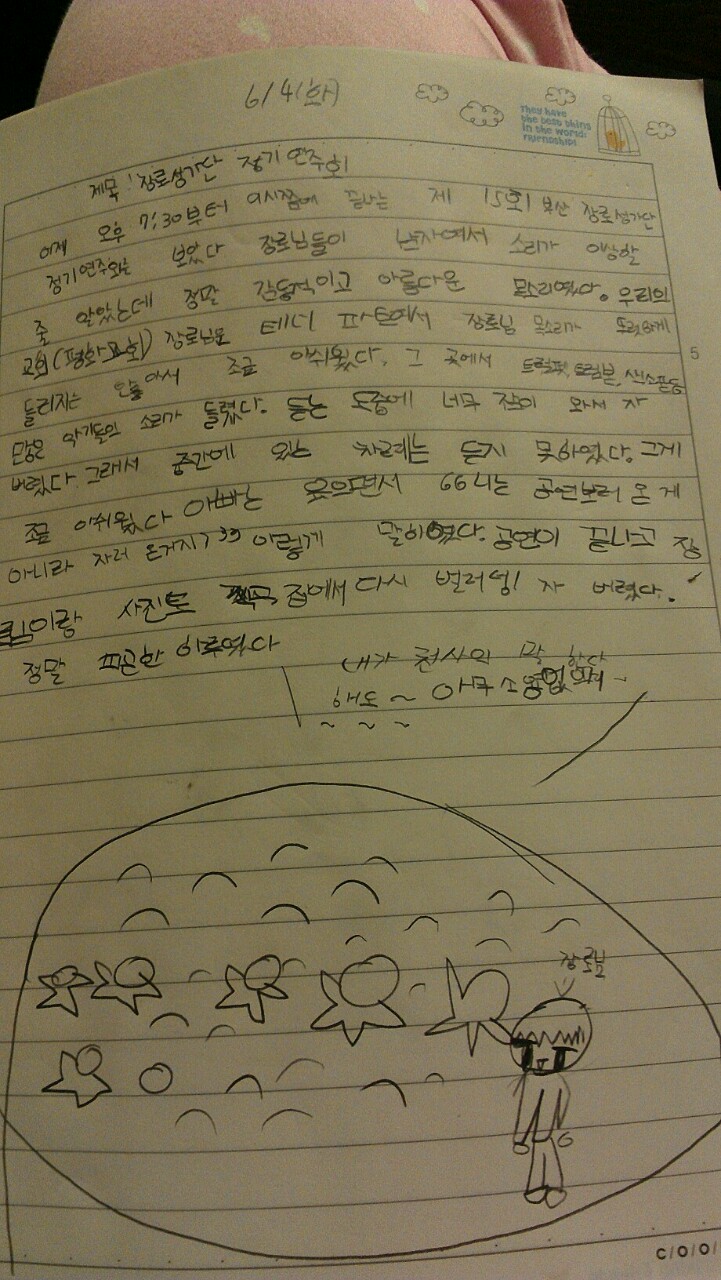 6/4(화)
They have
the best thing
in the world:
FRIENDSHIP!
제목 : 장로성가단 정기 연주회
어제 오후 7:30부터 9시쯤에 끝나는 제 15회 부산 장로성가단
정기연주회는 보았다 장로님들이 남자여서 소리가 이상할
줄 알았는데 정말 감동적이고 아름다운 목소리였다. 우리의
교회(평화교회) 장로님은 테너 파트여서 장로님 목소리가 또렷하게
들리지는 않아서 조금 아쉬웠다. 그 곳에서 트럼펫, 트럼본, 색소폰등
많은 악기들의 소리가 들렸다. 듣는 도중에 너무 잠이 와서 자
버렸다. 그래서 중간에 있는 차례는 듣지 못하였다. 그게
조금 아쉬웠다 아빠는 웃으면서 66니는 공연보러 온 게
아니라 자러 온거지?99 이렇게 말하였다. 공연이 끝나고 장
로님이랑 사진도 찍고 집에서 다시 벌러덩! 자 버렸다.
정말 피곤한 하루였다
내가 천사의 말 한다
해도 ~ 아무 소용없
~ ~ ~
장로님
5